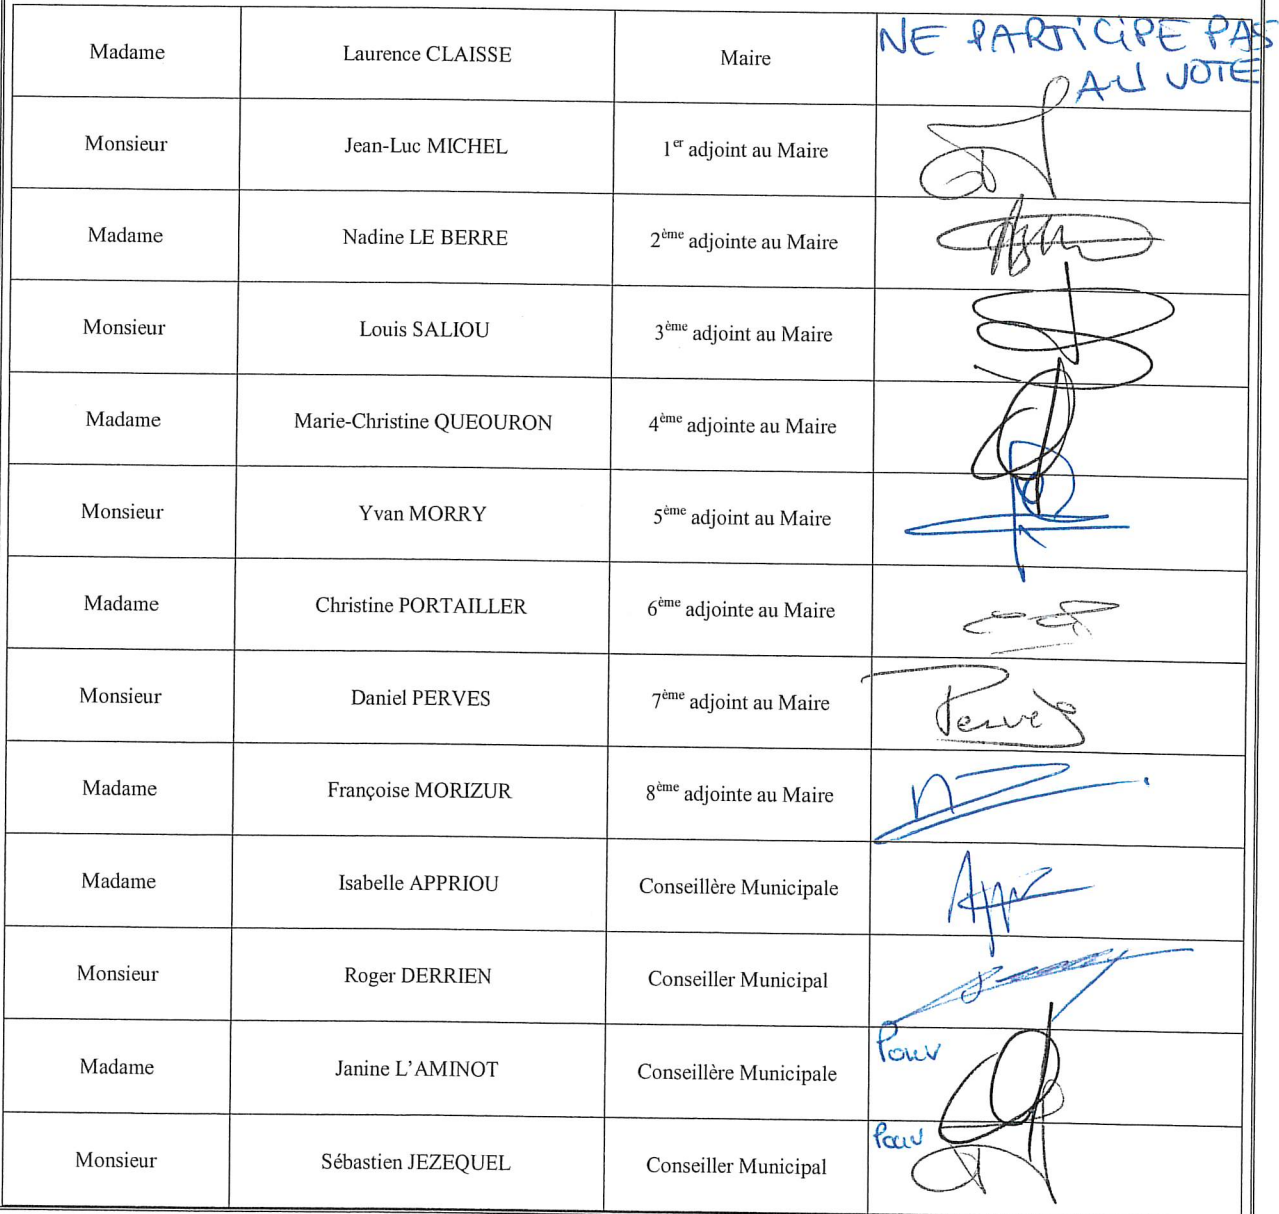 Madame Laurence CLAISSE Maire NE PARTICIPE PAS
AU VOTE
Monsieur Jean-Luc MICHEL 1er adjoint au Maire
Madame Nadine LE BERRE 2ème adjointe au Maire
Monsieur Louis SALIOU 3ème adjoint au Maire
Madame Marie-Christine QUEOURON 4ème adjointe au Maire
Monsieur Yvan MORRY 5ème adjoint au Maire
Madame Christine PORTAILLER 6ème adjointe au Maire
Monsieur Daniel PERVES 7ème adjoint au Maire Perves
Madame Françoise MORIZUR 8ème adjointe au Maire
Madame Isabelle APPRIOU Conseillère Municipale
Monsieur Roger DERRIEN Conseiller Municipal
Madame Janine L'AMINOT Conseillère Municipale Pouv
Monsieur Sébastien JEZEQUEL Conseiller Municipal Pouv